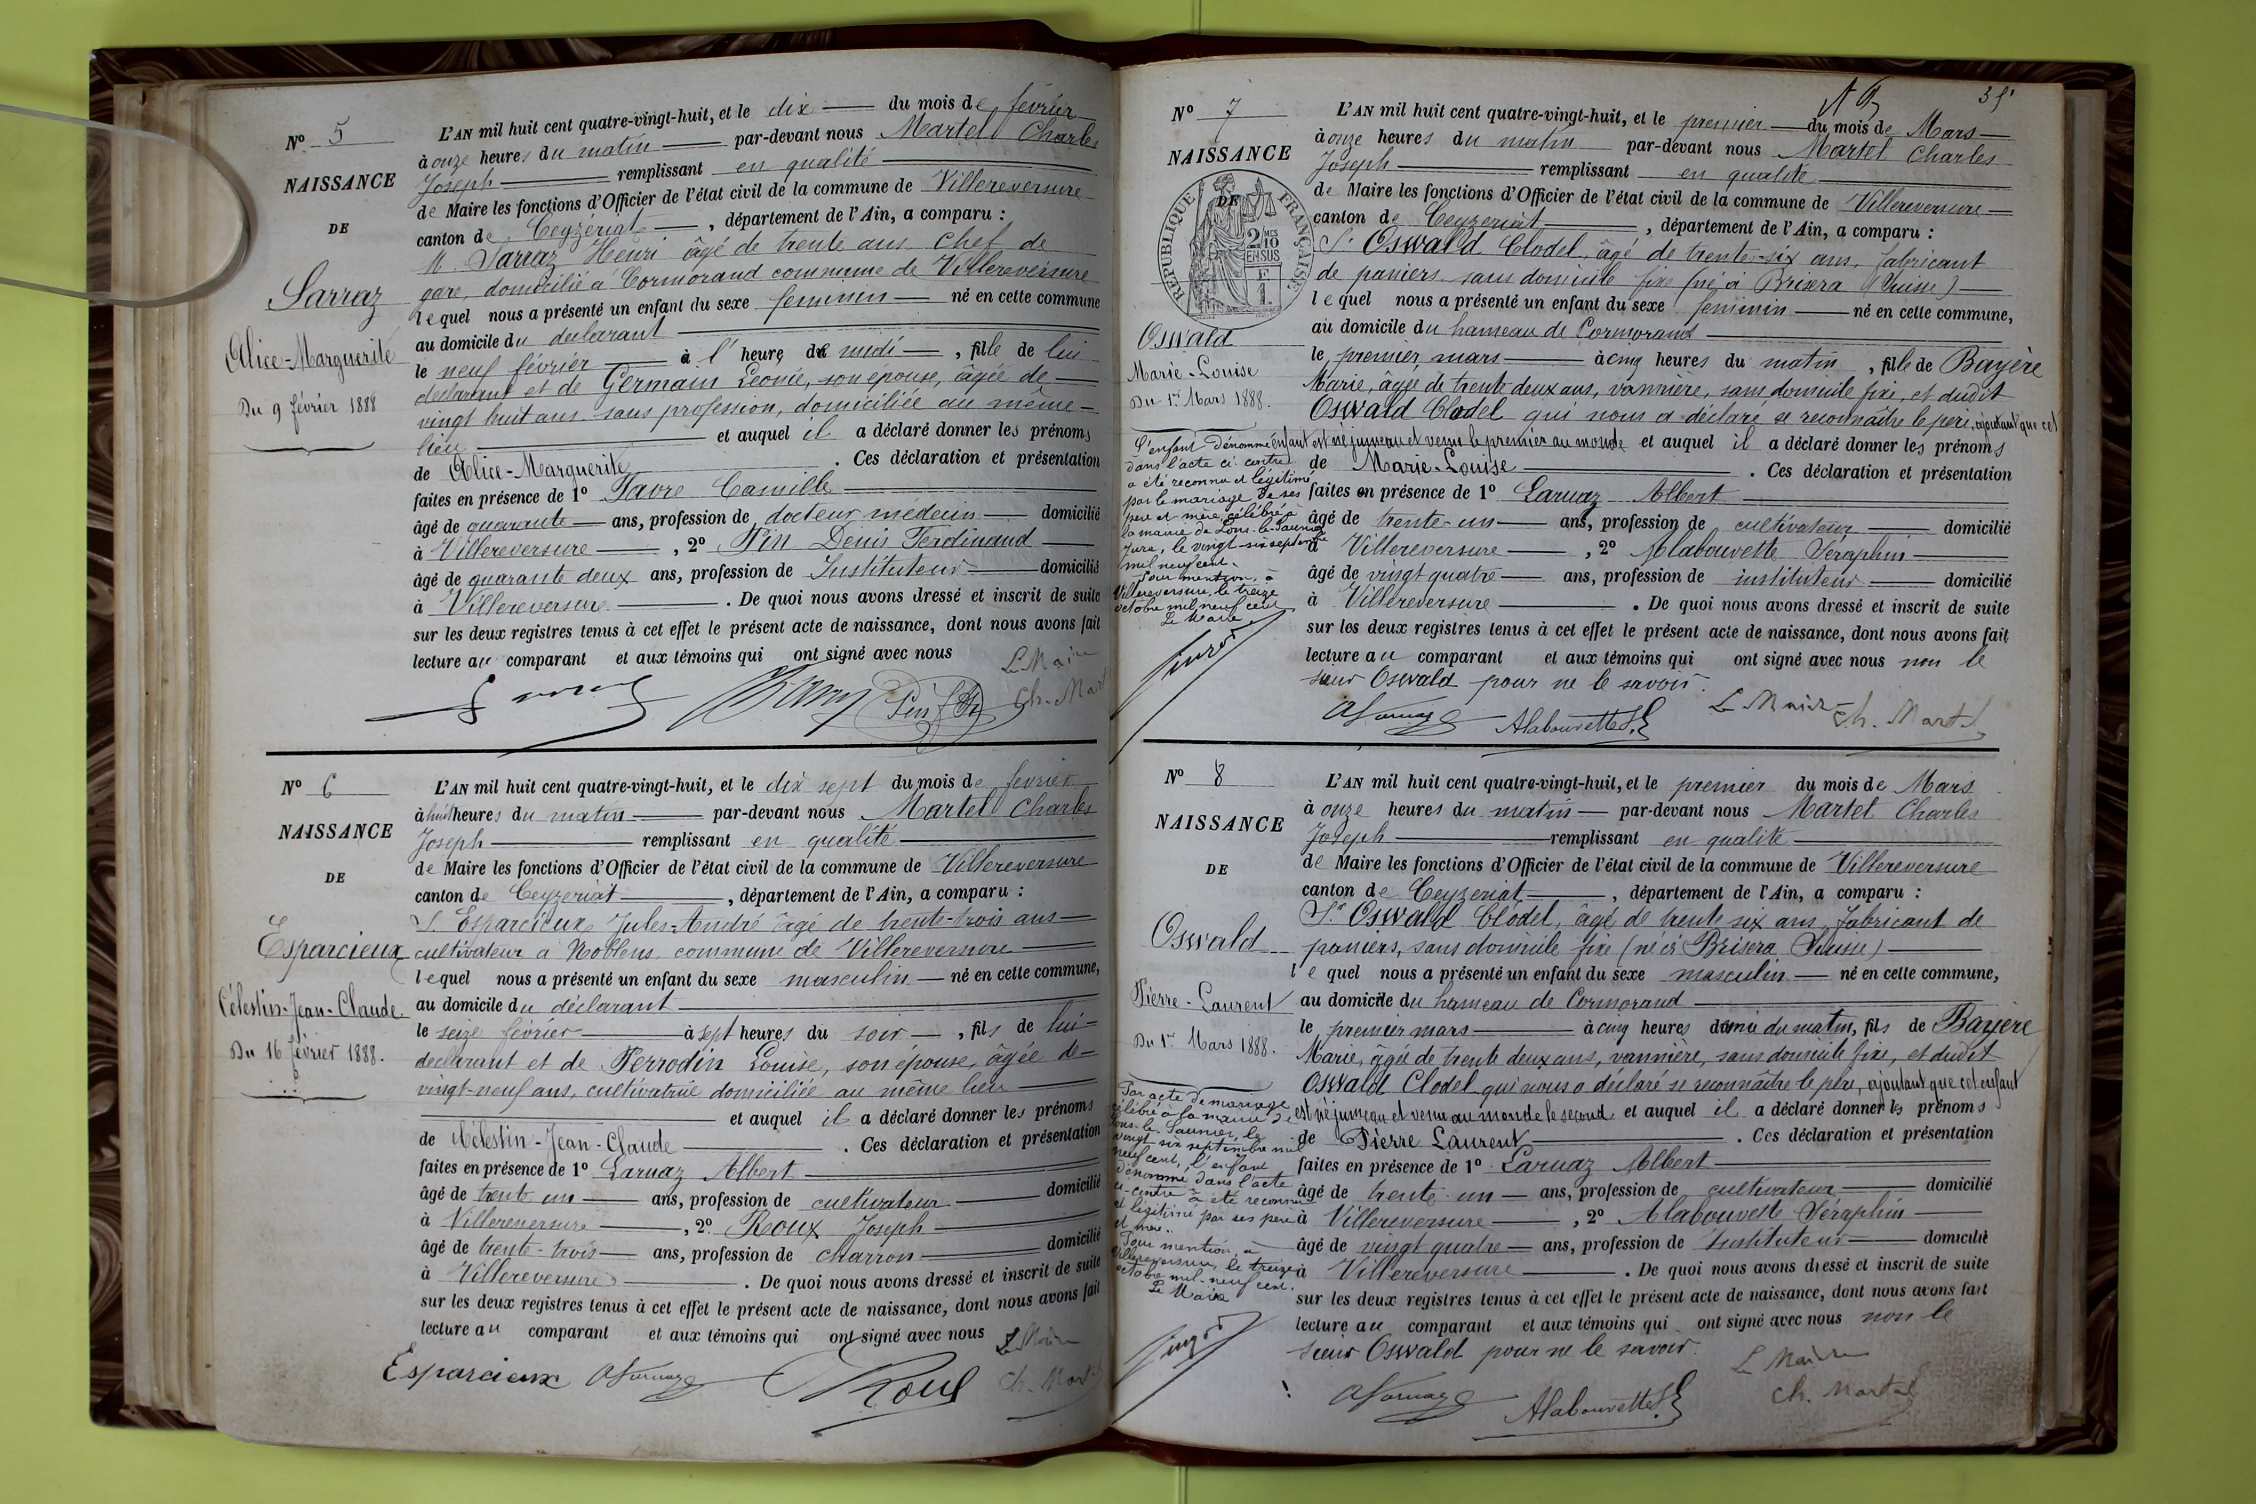 N° 5
NAISSANCE
DE
Sarraz
Alice-Marguerite
Du 9 février 1888
L'AN mil huit cent quatre-vingt-huit, et le dix du mois de février
à onze heures du matin par-devant nous Martel Charles
Joseph remplissant en qualité
de Maire les fonctions d'Officier de l'état civil de la commune de Villereversure
canton de Ceyzériat, département de l'Ain, a comparu :
M. Sarraz Henri âgé de trente ans Chef de
gare, domicilié à Cormorand commune de Villereversure
lequel nous a présenté un enfant du sexe feminin né en cette commune
au domicile du declarant
le neuf février à l' heure de midi, fille de lui
declarant et de Germain Léonie, son épouse, âgée de
vingt huit ans sans profession, domiciliée au même
lieu et auquel il a déclaré donner les prénoms
de Alice-Marguerite. Ces déclaration et présentation
faites en présence de 1° Favre Camille
âgé de quarante ans, profession de docteur médecin domicilié
à Villereversure, 2° Pin Denis Ferdinand
âgé de quarante deux ans, profession de Instituteur domicilié
à Villereversure. De quoi nous avons dressé et inscrit de suite
sur les deux registres tenus à cet effet le présent acte de naissance, dont nous avons fait
lecture au comparant et aux témoins qui ont signé avec nous
Le Maire
Ch. Martel
N° 6
NAISSANCE
DE
Esparcieux
Célestin-Jean-Claude.
Du 16 février 1888.
L'AN mil huit cent quatre-vingt-huit, et le dix sept du mois de février
à huit heures du matin par-devant nous Martel Charles
Joseph remplissant en qualité
de Maire les fonctions d'Officier de l'état civil de la commune de Villereversure
canton de Ceyzeriat, département de l'Ain, a comparu :
S. Esparcieux Jules-André âgé de trente-trois ans
cultivateur à Noblens commune de Villereversure
lequel nous a présenté un enfant du sexe masculin né en cette commune,
au domicile du déclarant
le seize février à sept heures du soir, fils de lui
declarant et de Perrodin Louise, son épouse, âgée de
vingt-neuf ans, cultivatrice domiciliée au même lieu
et auquel il a déclaré donner les prénoms
de Célestin-Jean-Claude. Ces déclaration et présentation
faites en présence de 1° Laruaz Albert
âgé de trente un ans, profession de cultivateur domicilié
à Villereversure, 2° Roux Joseph
âgé de trente-trois ans, profession de charron domicilié
à Villereversure. De quoi nous avons dressé et inscrit de suite
sur les deux registres tenus à cet effet le présent acte de naissance, dont nous avons fait
lecture au comparant et aux témoins qui ont signé avec nous
Le Maire
Esparcieux ALaruaz Roux Ch. Martel
N° 7
NAISSANCE
DE
RÉPUBLIQUE FRANÇAISE
2 MES
10
EN SUS
Oswald
Marie-Louise
Du 1er Mars 1888.
L'enfant dénommé
dans l'acte ci-contre
a été reconnu et légitimé
par le mariage de ses
père et mère, célébré à
la mairie de Lons-le-Saunier
Jura, le vingt-six septembre
mil neuf cent.
Pour mention, à
Villereversure, le treize
octobre mil neuf cent
Le Maire
L'AN mil huit cent quatre-vingt-huit, et le premier du mois de Mars
à onze heures du matin par-devant nous Martel Charles
Joseph remplissant en qualité
de Maire les fonctions d'Officier de l'état civil de la commune de Villereversure
canton de Ceyzeriat, département de l'Ain, a comparu :
Sr Oswald Clodel, âgé de trente-six ans, fabricant
de paniers sans domicile fixe (né à Brisera (Suisse)
lequel nous a présenté un enfant du sexe feminin né en cette commune,
au domicile du hameau de Cormorand
le premier mars à cinq heures du matin, fille de Bayère
Marie, âgée de trente deux ans, vannière, sans domicile fixe, et dudit
Oswald Clodel qui nous a déclaré se reconnaître le père, ajoutant que cet
enfant est né jumeau et venu le premier au monde et auquel il a déclaré donner les prénoms
de Marie-Louise. Ces déclaration et présentation
faites en présence de 1° Laruaz Albert
âgé de trente-un ans, profession de cultivateur domicilié
à Villereversure, 2° Alabouvette Séraphin
âgé de vingt quatre ans, profession de instituteur domicilié
à Villereversure. De quoi nous avons dressé et inscrit de suite
sur les deux registres tenus à cet effet le présent acte de naissance, dont nous avons fait
lecture au comparant et aux témoins qui ont signé avec nous non le
sieur Oswald pour ne le savoir.
ALaruaz Alabouvette S. Le Maire Ch. Martel
N° 8
NAISSANCE
DE
Oswald
Pierre-Laurent
Du 1er Mars 1888.
Par acte de mariage
célébré à la mairie de
Lons-le-Saunier, le
vingt six septembre mil
neuf cent, l'enfant
dénommé dans l'acte
ci-contre a été reconnu
et légitimé par ses père
et mère.
Pour mention, à
Villereversure, le treize
octobre mil neuf cent.
Le Maire
L'AN mil huit cent quatre-vingt-huit, et le premier du mois de Mars
à onze heures du matin par-devant nous Martel Charles
Joseph remplissant en qualité
de Maire les fonctions d'Officier de l'état civil de la commune de Villereversure
canton de Ceyzeriat, département de l'Ain, a comparu :
Sr Oswald Clodel, âgé de trente six ans, fabricant de
paniers, sans domicile fixe (né à Brisera Suisse)
lequel nous a présenté un enfant du sexe masculin né en cette commune,
au domicile du hameau de Cormorand
le premier mars à cinq heures demie du matin, fils de Bayère
Marie, âgée de trente deux ans, vannière, sans domicile fixe, et dudit
Oswald Clodel qui nous a déclaré se reconnaître le père, ajoutant que cet enfant
est né jumeau et venu au monde le second et auquel il a déclaré donner les prénoms
de Pierre Laurent. Ces déclaration et présentation
faites en présence de 1° Laruaz Albert
âgé de trente-un ans, profession de cultivateur domicilié
à Villereversure, 2° Alabouvette Séraphin
âgé de vingt quatre ans, profession de Instituteur domicilié
à Villereversure. De quoi nous avons dressé et inscrit de suite
sur les deux registres tenus à cet effet le présent acte de naissance, dont nous avons fait
lecture au comparant et aux témoins qui ont signé avec nous non le
sieur Oswald pour ne le savoir.
Le Maire
ALaruaz Alabouvette S. Ch. Martel